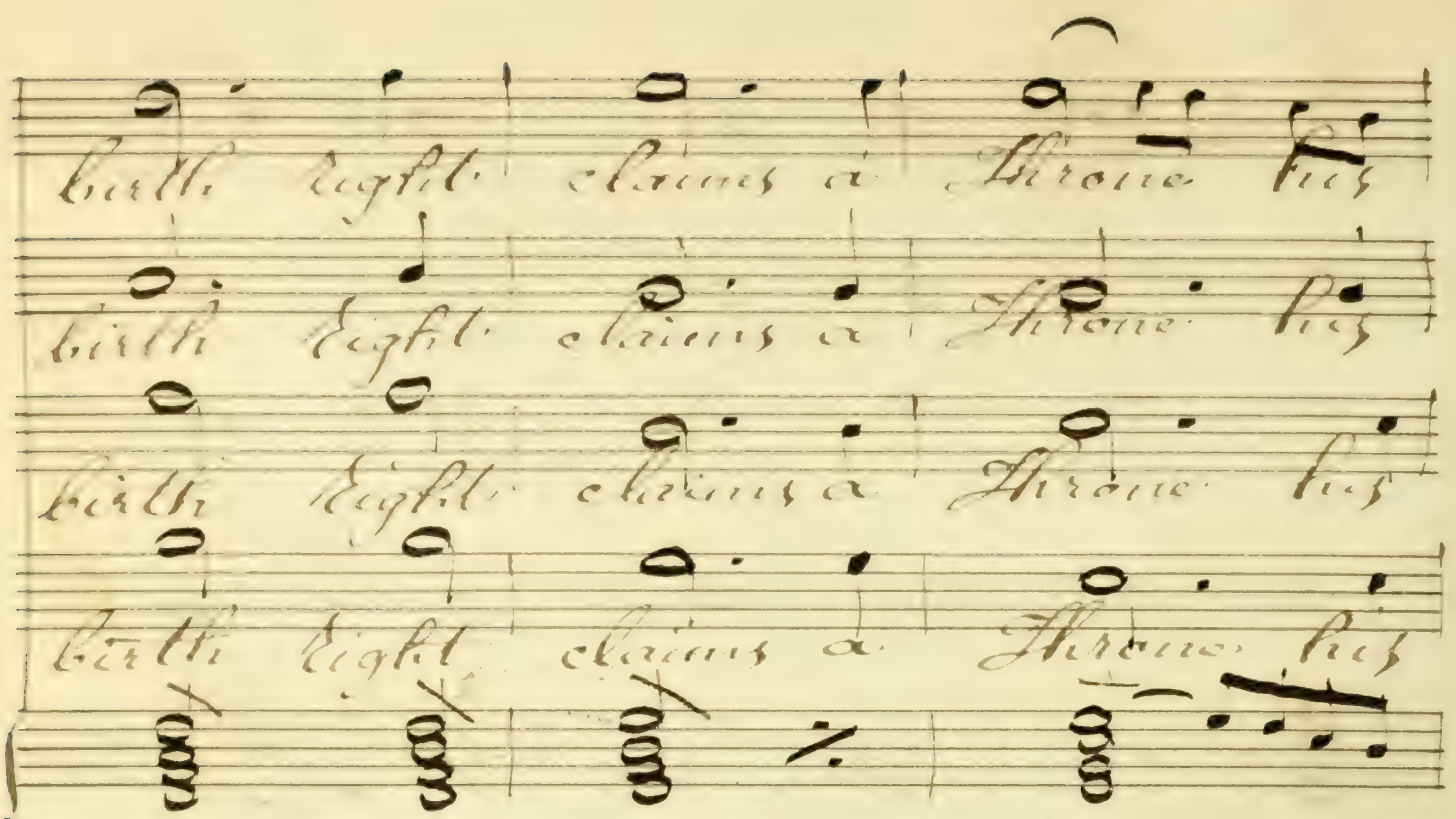 birth right claims a Throne his
birth right claims a Throne his
birth right claims a Throne his
birth right claims a Throne his